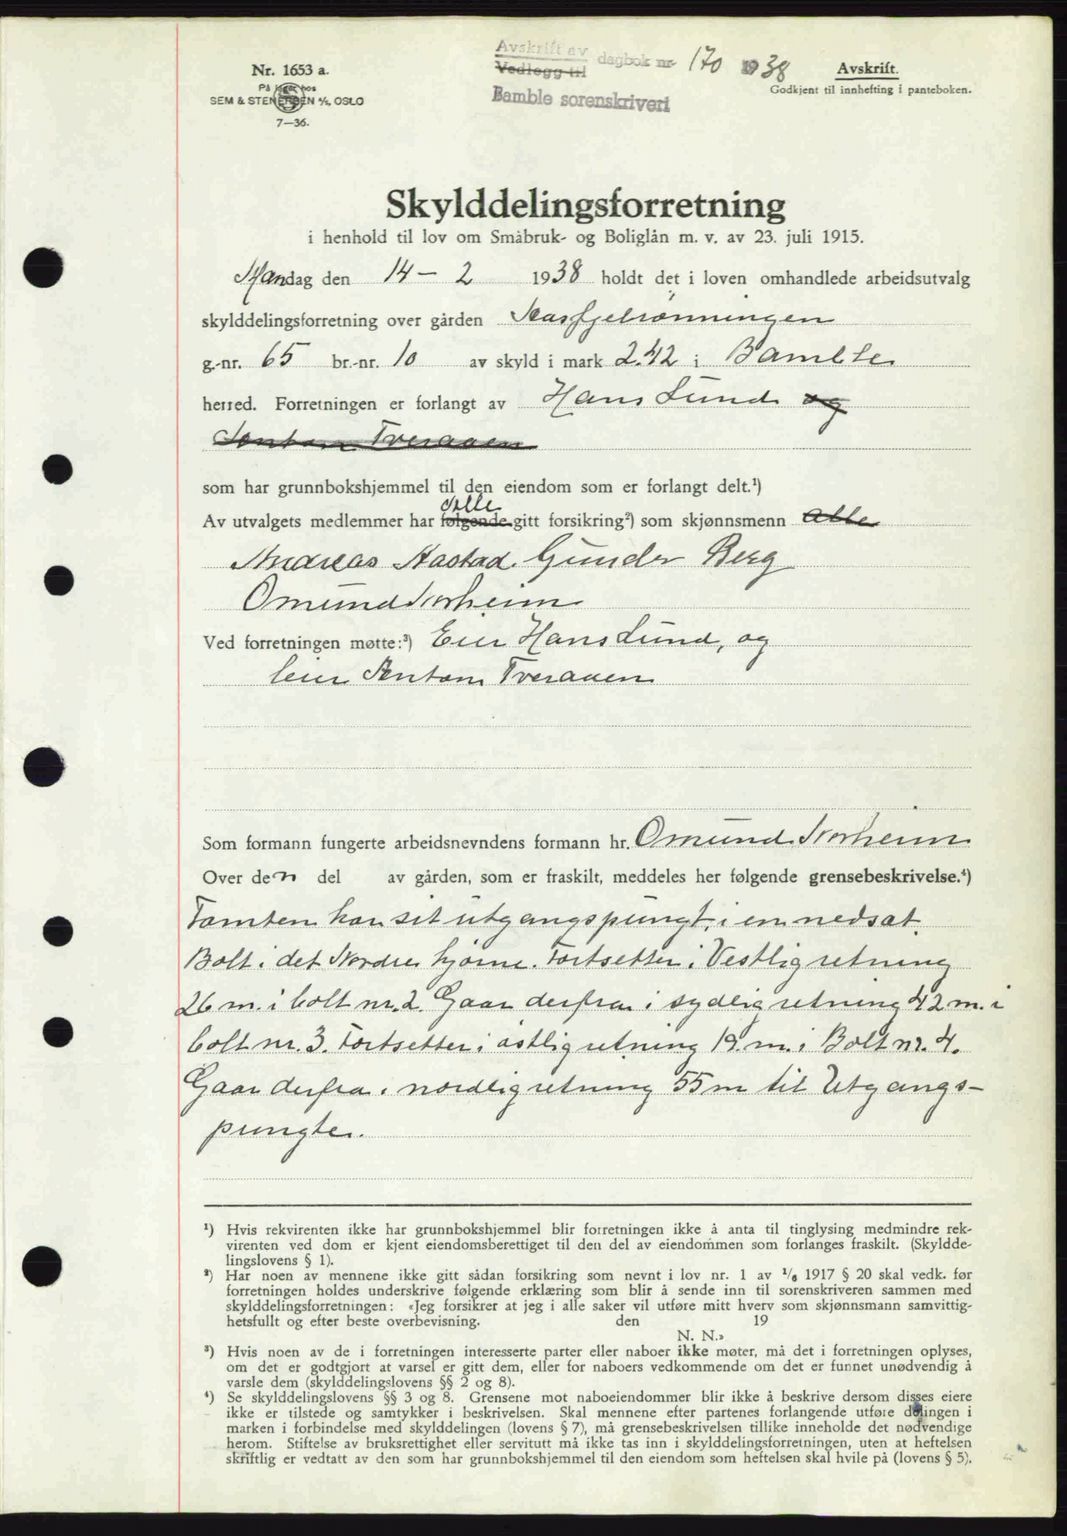 Nr. 1653 a.
På lager hos
SEM & STENERSEN A/S, OSLO
7—36.
Avskrift av
Vedlegg til dagbok nr. 170 1938
Bamble sorenskriveri
Avskrift.
Godkjent til innhefting i panteboken.
Skylddelingsforretning
i henhold til lov om Småbruk- og Boliglån m. v. av 23. juli 1915.
Mandag den 14 - 2 1938 holdt det i loven omhandlede arbeidsutvalg
skylddelingsforretning over gården
g.-nr. 65 br.-nr. 10 av skyld i mark 2.42 i Bamble
herred. Forretningen er forlangt av Hans Lund og
Anton Tveraaen
som har grunnbokshjemmel til den eiendom som er forlangt delt.¹)
Alle
Av utvalgets medlemmer har følgende gitt forsikring²) som skjønnsmenn alle
Andreas Aastad. Gunder Berg
Omund Norheim
Ved forretningen møtte:³) Eier Hans Lund, og
leier Anton Tveraaen
Som formann fungerte arbeidsnevndens formann hr. Omund Norheim
Over den del av gården, som er fraskilt, meddeles her følgende grensebeskrivelse.⁴)
Tomten har sit utgangspungt, i en nedsat
Bolt i det Nordre hjørne. Fortsetter i Vestlig retning
26 m. i bolt nr. 2. Gaar derfra i sydlig retning 42 m. i
bolt nr. 3. Fortsetter i østlig retning 19. m. i Bolt nr. 4.
Gaar derfra i nordlig retning 55 m til Utgangs-
pungter.
¹) Hvis rekvirenten ikke har grunnbokshjemmel blir forretningen ikke å anta til tinglysing medmindre rek-
virenten ved dom er kjent eiendomsberettiget til den del av eiendommen som forlanges fraskilt. (Skyldde-
lingslovens § 1).
²) Har noen av mennene ikke gitt sådan forsikring som nevnt i lov nr. 1 av 1/6 1917 § 20 skal vedk. før
forretningen holdes underskrive følgende erklæring som blir å sende inn til sorenskriveren sammen med
skylddelingsforretningen: «Jeg forsikrer at jeg i alle saker vil utføre mitt hverv som skjønnsmann samvittig-
hetsfullt og efter beste overbevisning. den 19
N. N.»
³) Hvis noen av de i forretningen interesserte parter eller naboer ikke møter, må det i forretningen oplyses,
om det er godtgjort at varsel er gitt dem, eller for naboers vedkommende om det er funnet unødvendig å
varsle dem (skylddelingslovens §§ 2 og 8).
⁴) Se skylddelingslovens §§ 3 og 8. Grensene mot naboeiendommer blir ikke å beskrive dersom disses eiere
ikke er tilstede og samtykker i beskrivelsen. Skal mennene efter partenes forlangende utføre delingen i
marken i forbindelse med skylddelingen (lovens § 7), må grensebeskrivelsen tillike inneholde det nødvendige
herom. Stiftelse av bruksrettighet eller servitutt må ikke tas inn i skylddelingsforretningen, uten at heftelsen
skriftlig er vedtatt av den som har grunnbokshjemmel til den eiendom som heftelsen skal hvile på (lovens § 5).